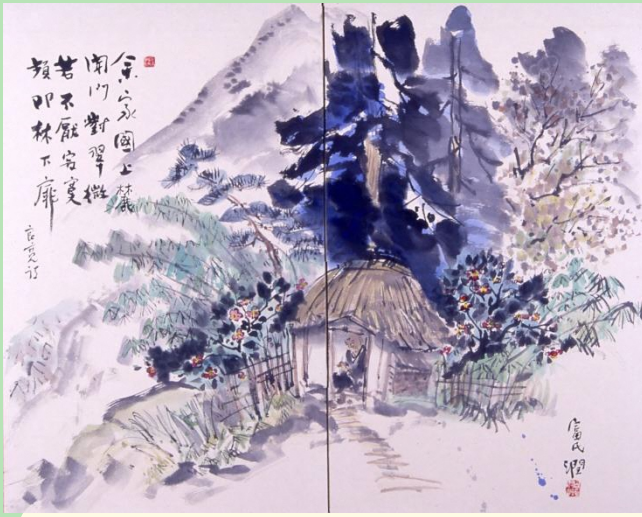 余家國上麓
閑門對翠微
若不厭寂寞
頻叩林下扉
良寛詩